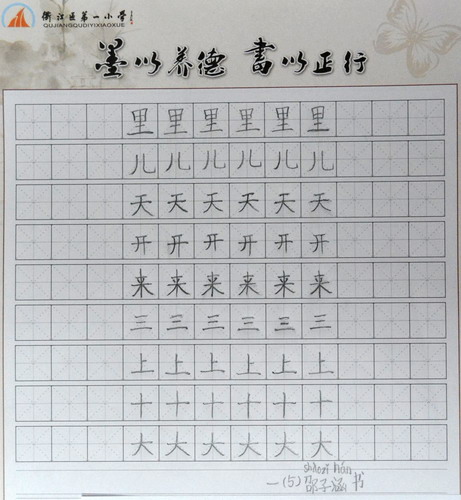 衢江区第一小学
QUJIANGQUDIYIXIAOXUE
墨以养德 書以正行
里里里里里里
儿儿儿儿儿儿
天天天天天天
开开开开开开
来来来来来来
三三三三三三
上上上上上上
十十十十十十
大大大大大大
hán
一(5)邵子涵书